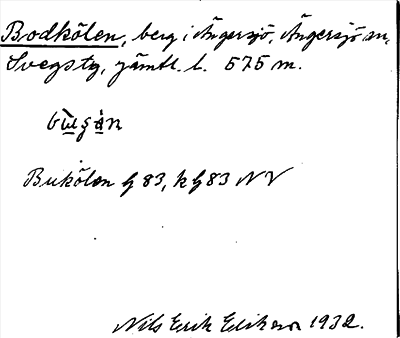 Bodkölen, berg i Ängersjö, Ängersjö sn,
Svegs tg, Jämtl. l. 575 m.
Bukölen h 83, k h 83 NV
Nils Erik Erikson 1932.